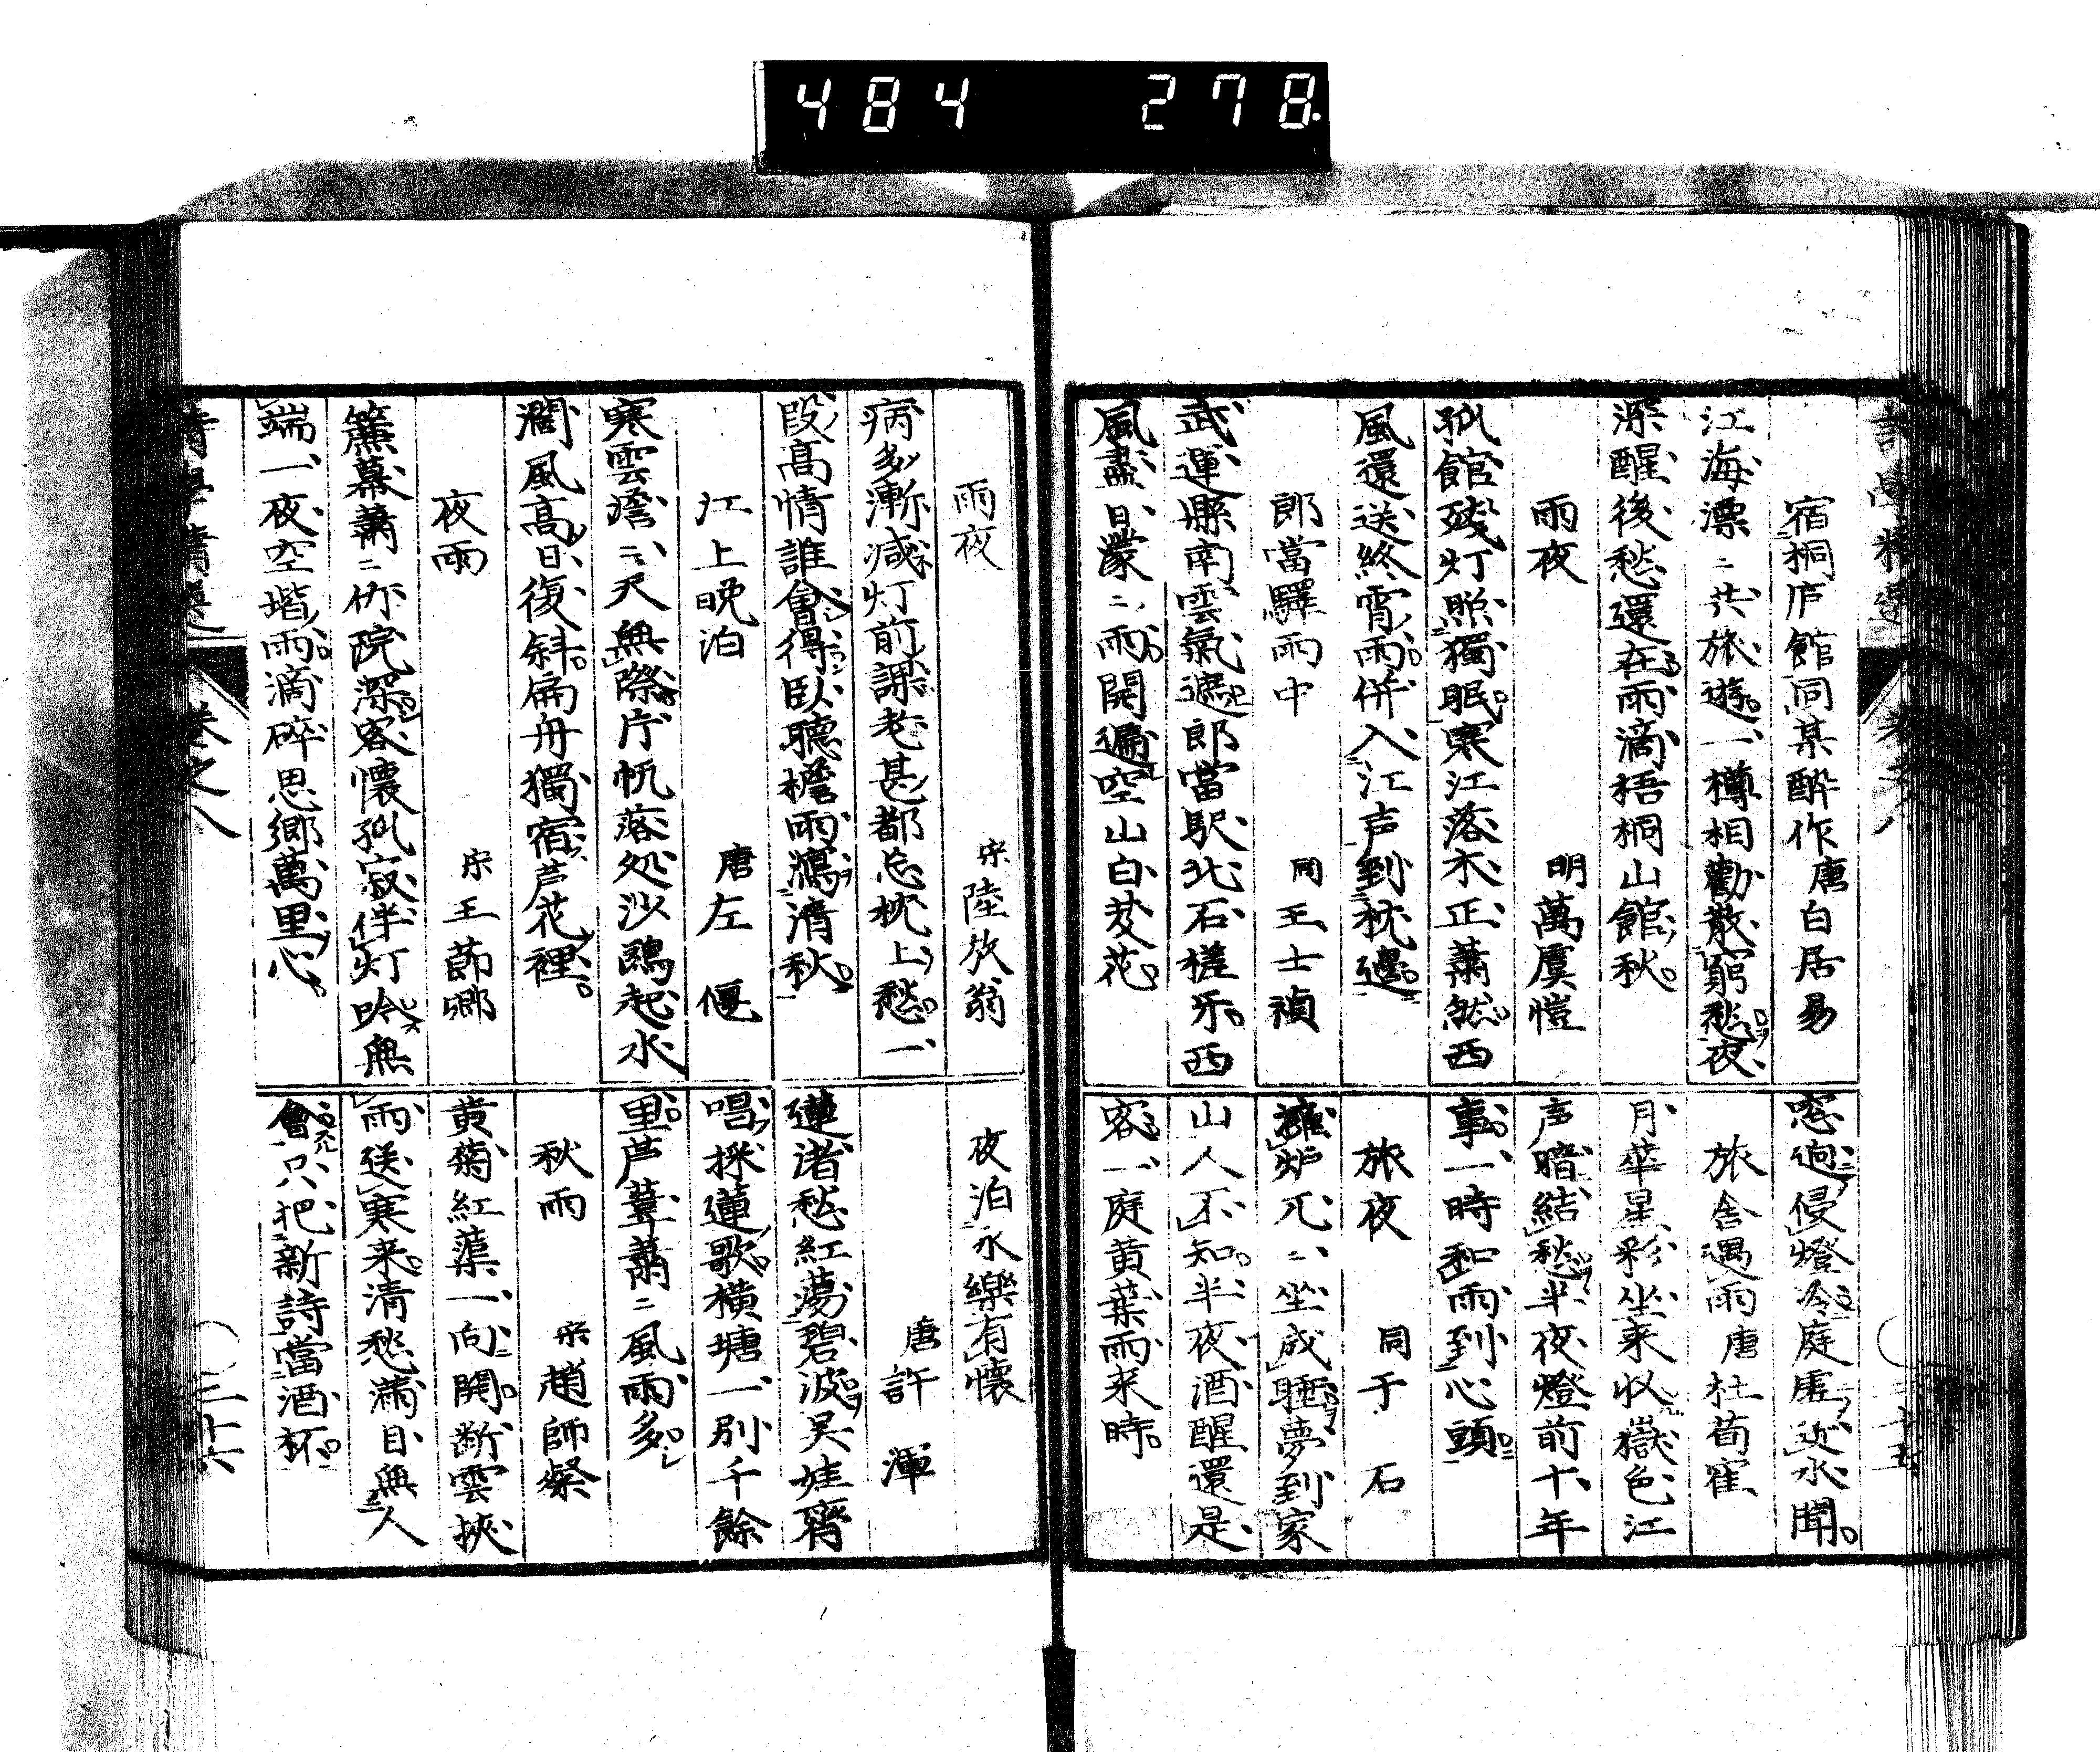 484 278
宿桐庐館同某酔作 唐 白居易
江海漂〻共旅遊一樽相勸散窮愁夜
深醒後愁還在雨滴梧桐山館秋
雨夜 明 萬虞愷
孤館残灯照獨眠寒江落木正蕭然西
風還送終宵雨併入江声到枕邊
郎當驛雨中 同 王士禎
武連縣南雲氣遮郎當駅北石槎牙西
風盡日濛〻雨開遍空山白芨花
窓逈侵燈冷庭虚近水聞
旅舎遇雨 唐 杜荀隺
月華星彩坐来收嶽色江
声暗結愁半夜燈前十年
事一時和雨到心頭
旅夜 同 于石
擁炉兀〻坐成睡夢到家
山人不知半夜酒醒還是
客一庭黄葉雨来時
雨夜 宋 陸放翁
病多漸減灯前課老甚都忘枕上愁一
段高情誰會得臥聽檐雨瀉清秋
江上晚泊 唐 左偃
寒雲澹〻天無際片帆落処沙鷗起水
濶風高日復斜扁舟獨宿芦花裡
夜雨 宋 王莭卿
簾幕蕭〻竹院深客懷孤寂伴灯吟無
端一夜空堦雨滴碎思郷萬里心
夜泊永樂有懷
唐 許渾
蓮渚愁紅蕩碧波吴娃齊
唱採蓮歌横塘一別千餘
里芦葦蕭〻風雨多
秋雨 宋 趙師粲
黄菊紅蕖一向開断雲挾
雨送寒来清愁満目無人
會只把新詩當酒杯
卷之八
三十六